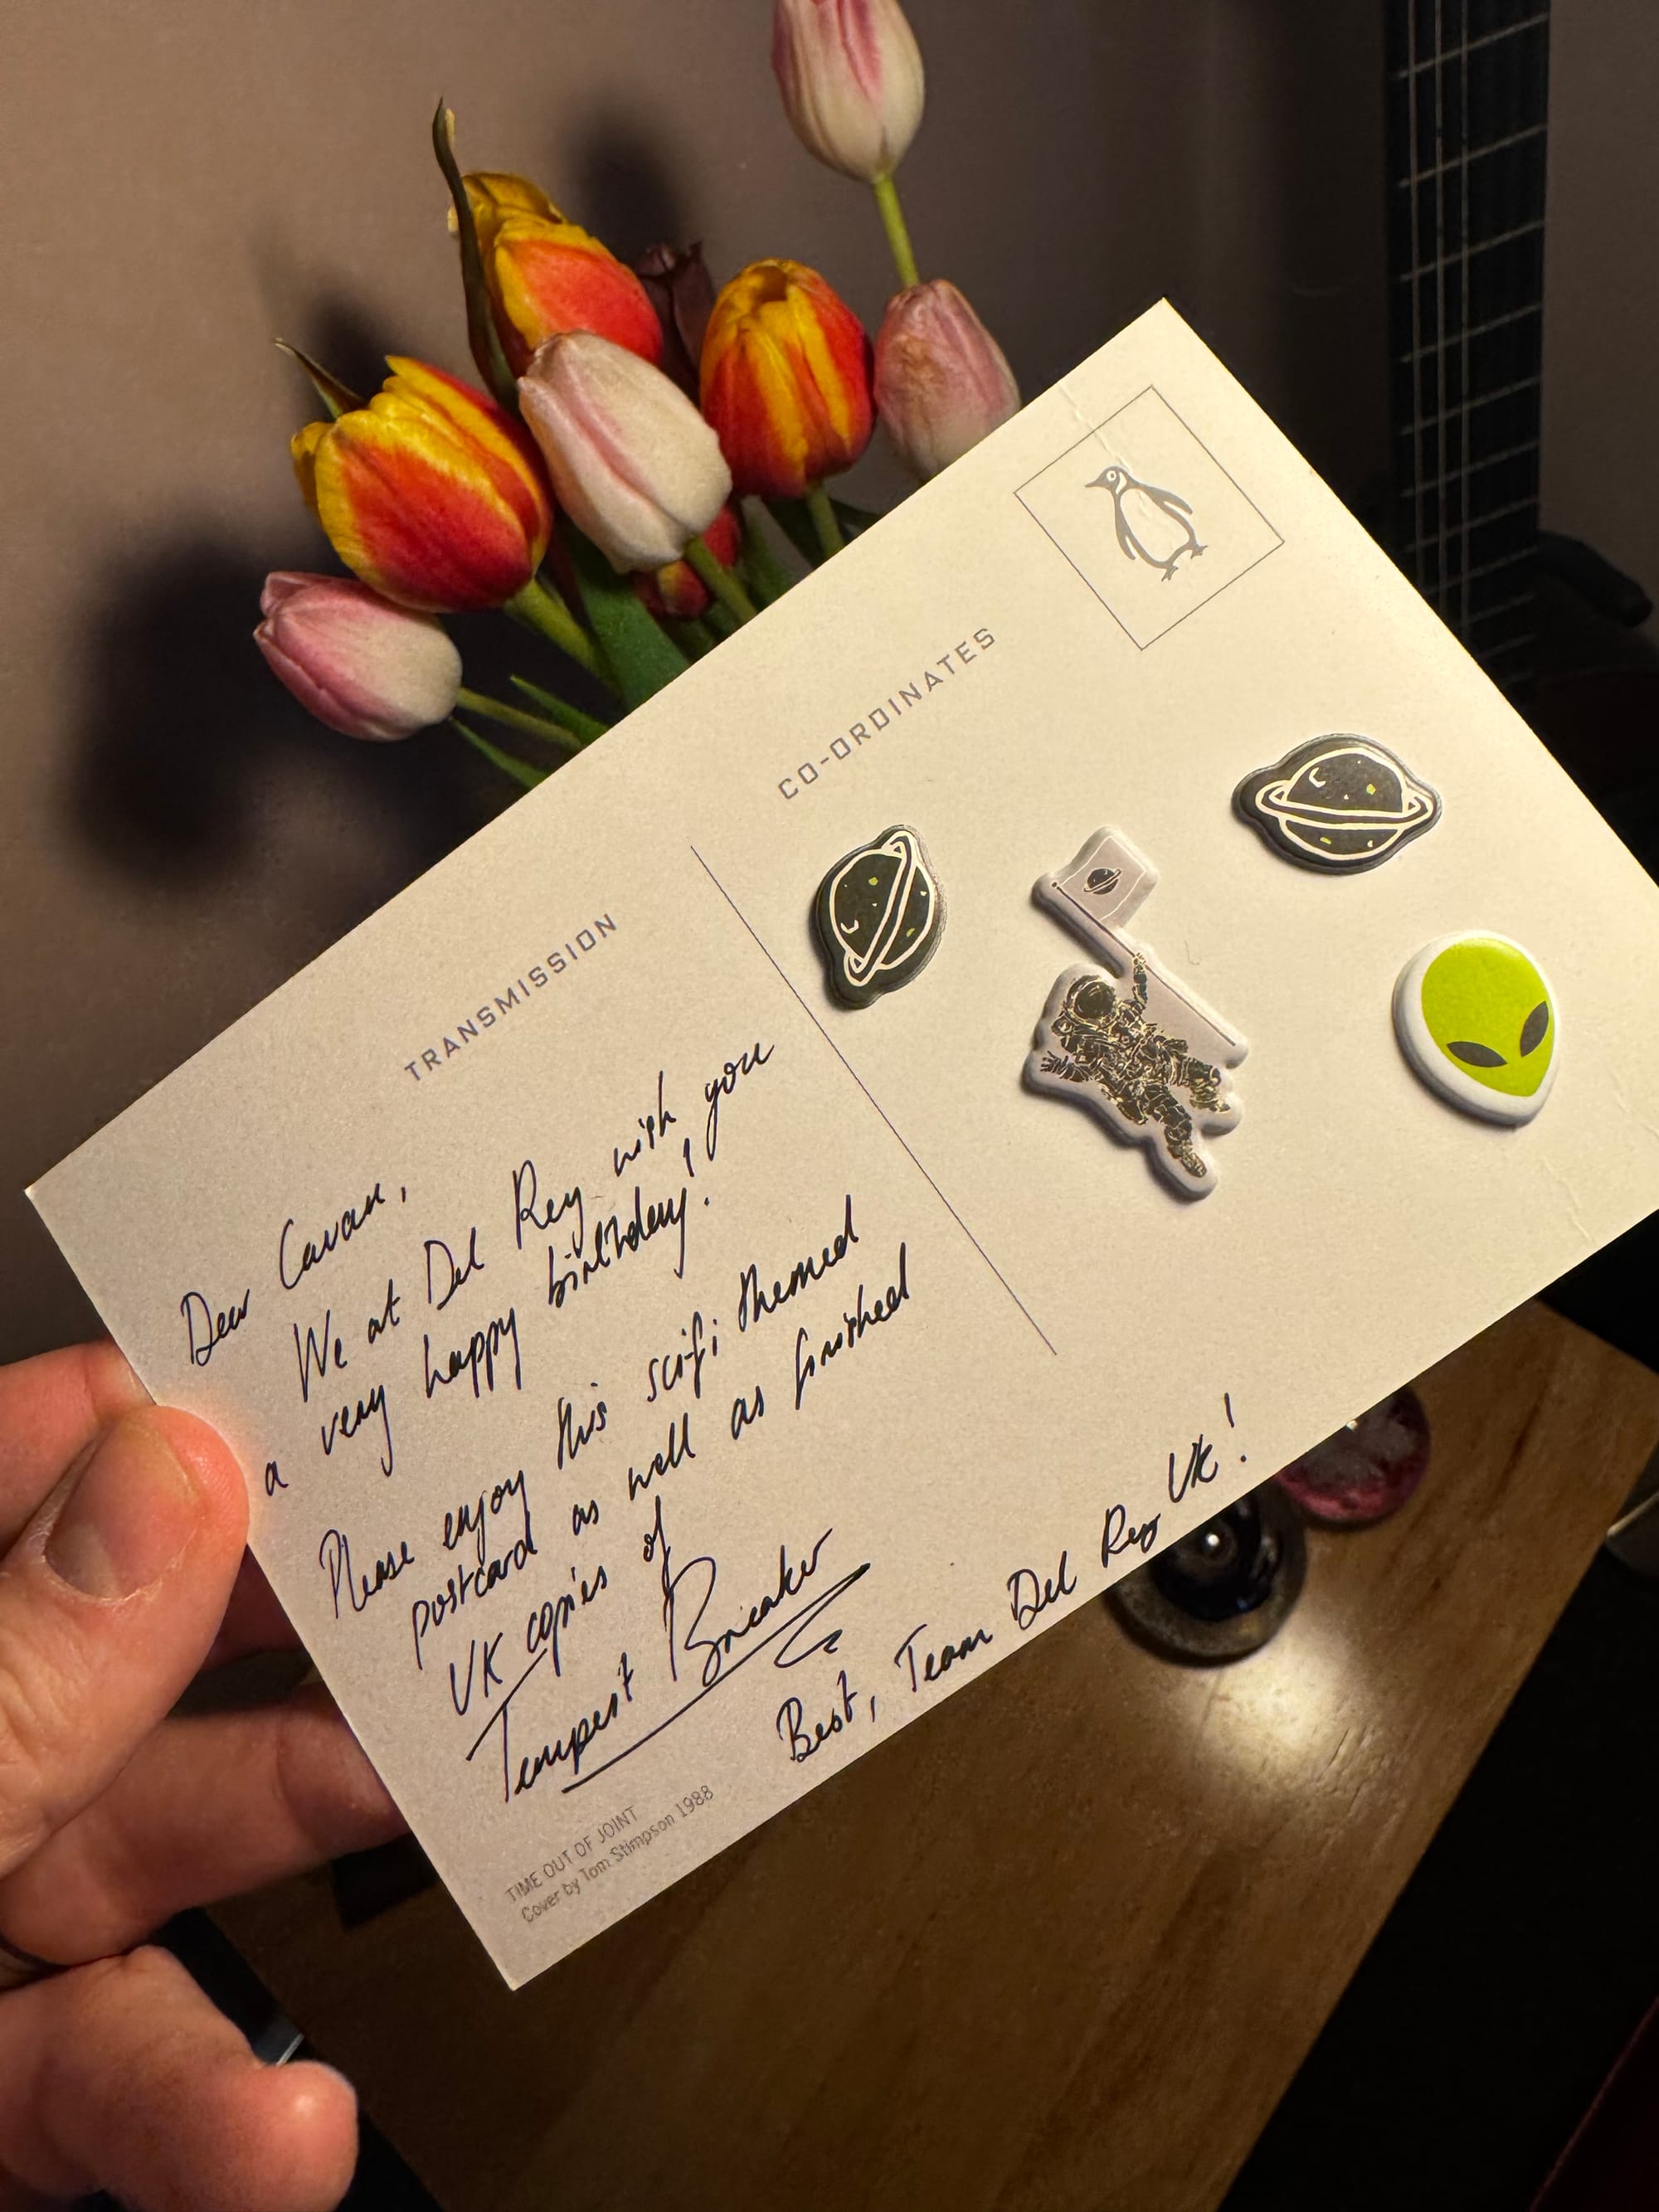 TRANSMISSION
Dear Cavan,
We at Del Rey wish you
a very happy birthday!
Please enjoy this scifi themed
postcard as well as finished
UK copies of
Tempest Breaker
Best, Team Del Rey UK!
TIME OUT OF JOINT
Cover by Tom Stimpson 1988
CO-ORDINATES